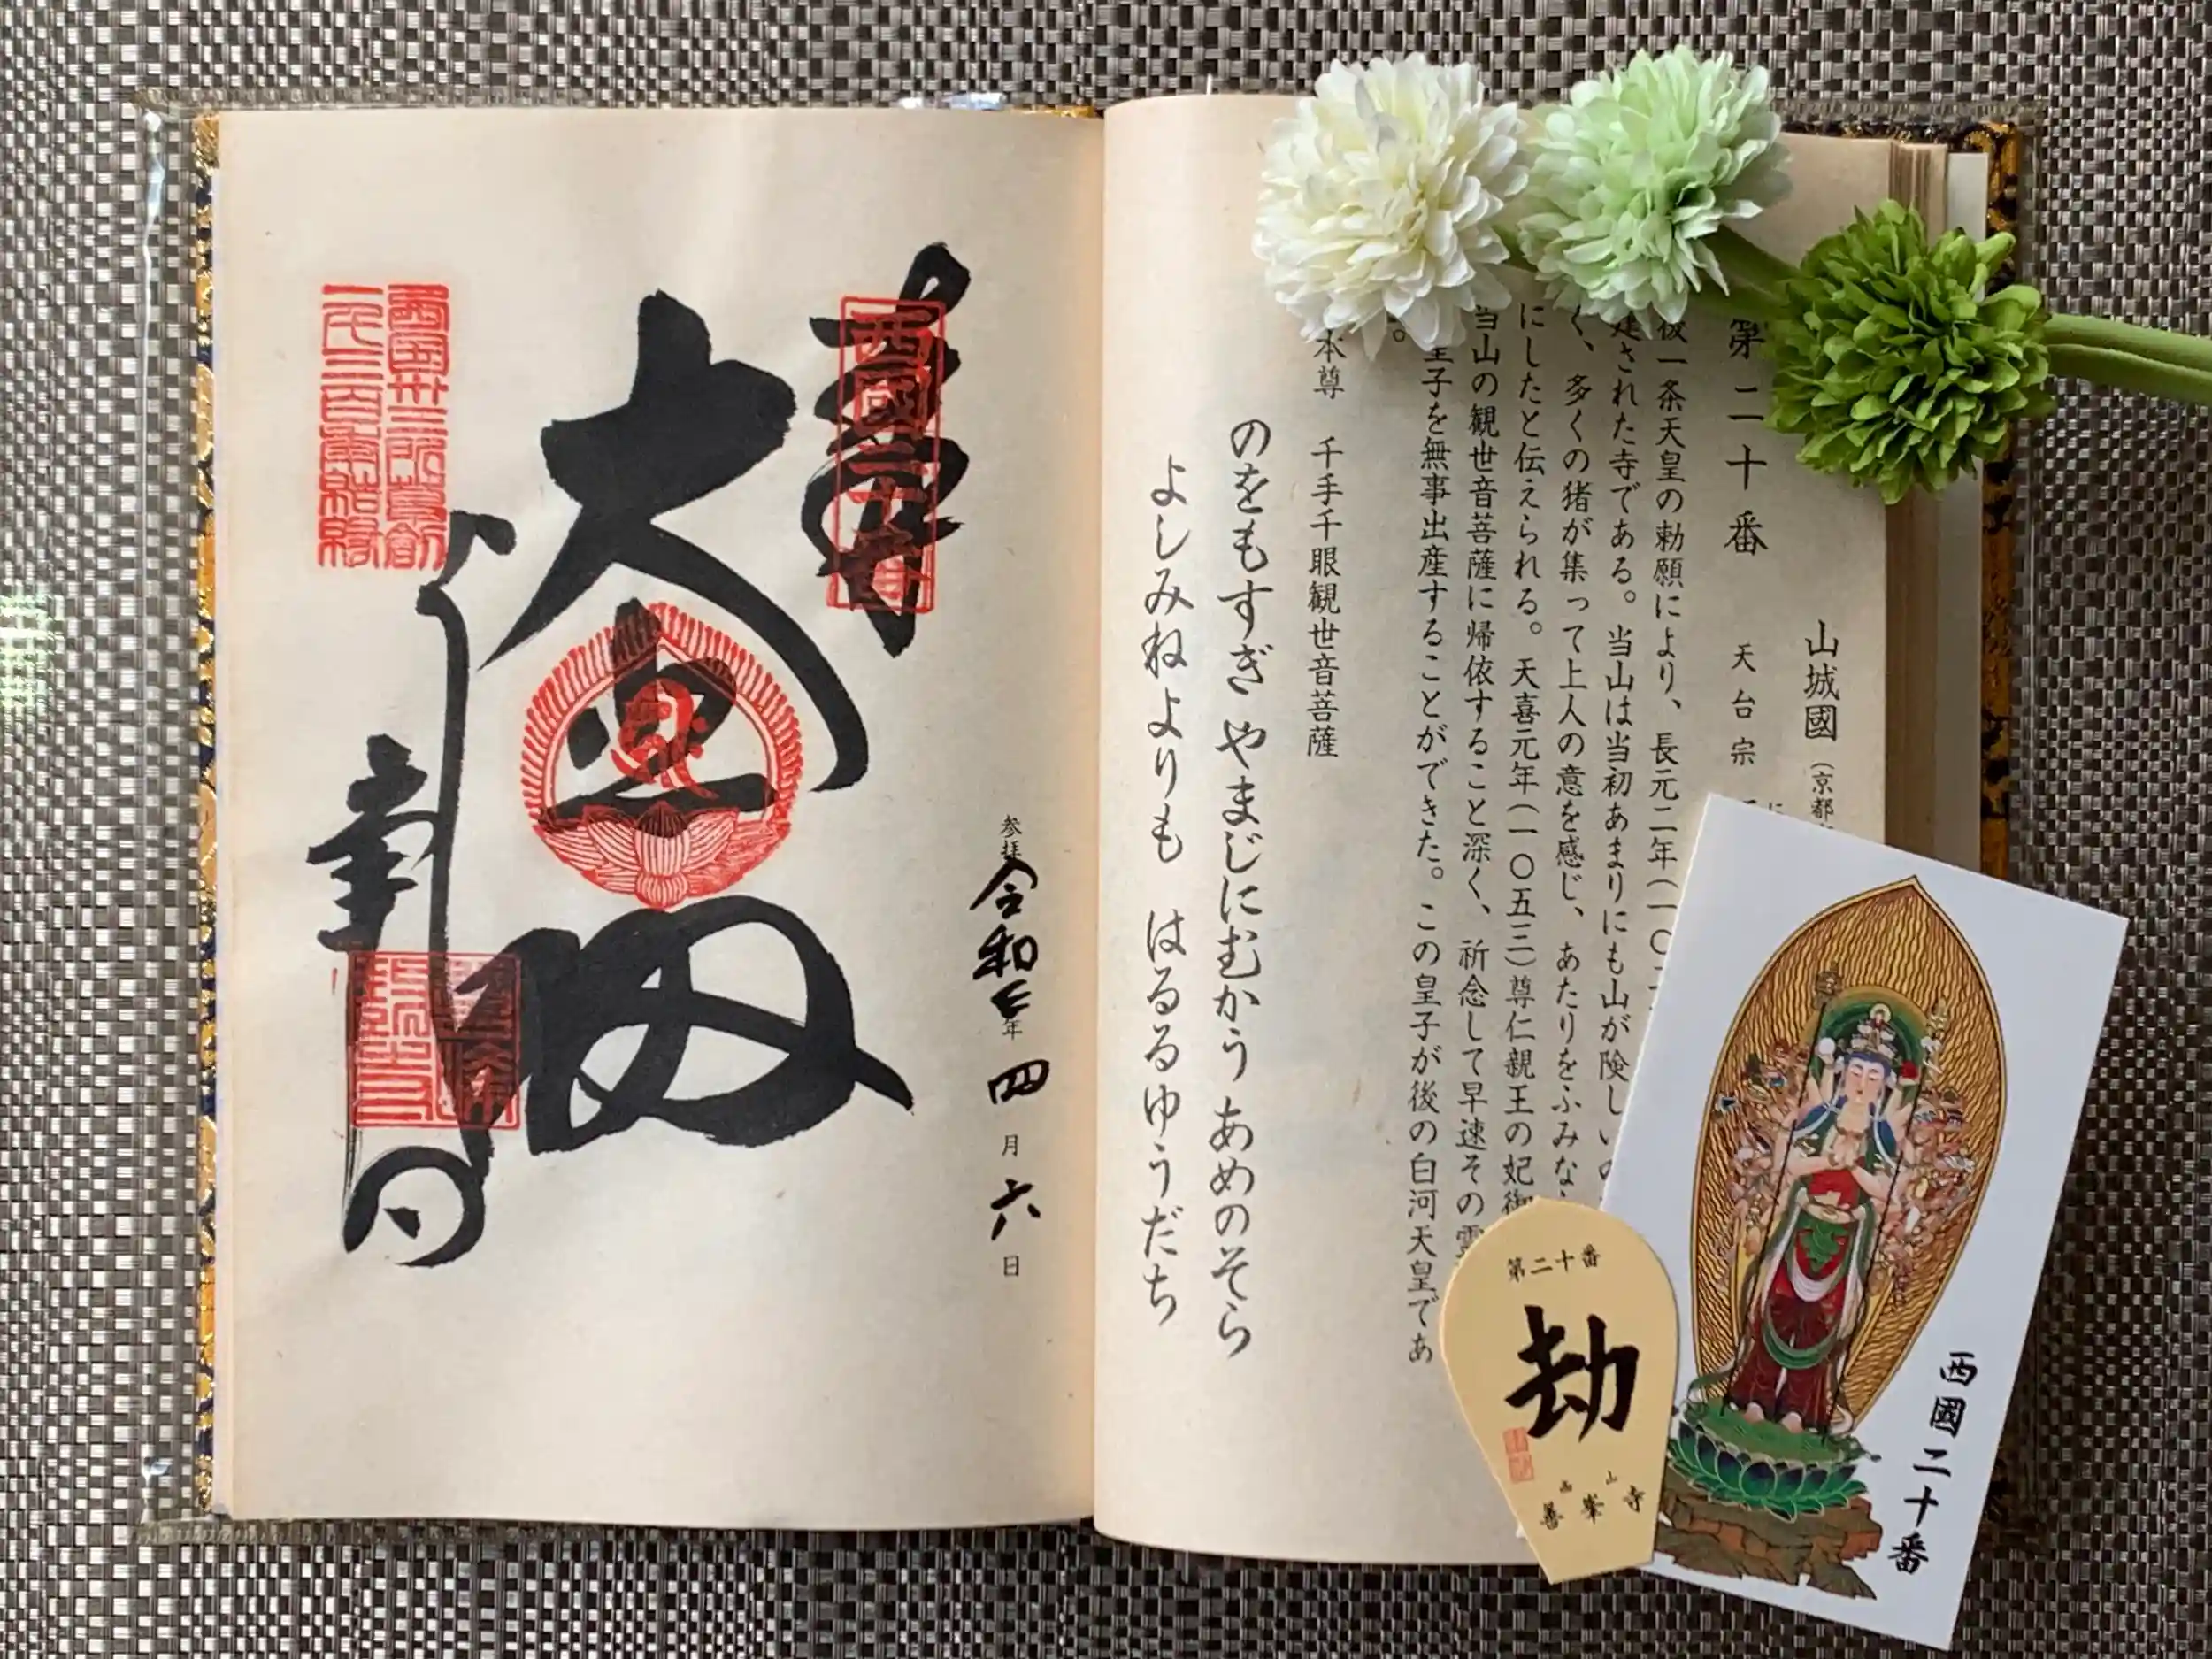 山城國（京都
第二十番 天台宗
後一条天皇の勅願により、長元二年（一〇
建された寺である。当山は当初あまりにも山が険しい
く、多くの猪が集って上人の意を感じ、あたりをふみな
にしたと伝えられる。天喜元年（一〇五三）尊仁親王の妃御
当山の観世音菩薩に帰依すること深く、祈念して早速その霊
皇子を無事出産することができた。この皇子が後の白河天皇であ
。
本尊 千手千眼観世音菩薩
のをもすぎ やまじにむかう あめのそら
よしみねよりも はるるゆうだち
奉拝
西國二十番
大悲閣
善峯寺
西国卅三所草創
一千三百年結縁
参拝 令和 年 四月六日
第二十番
劫
西山
善峯寺
西國二十番